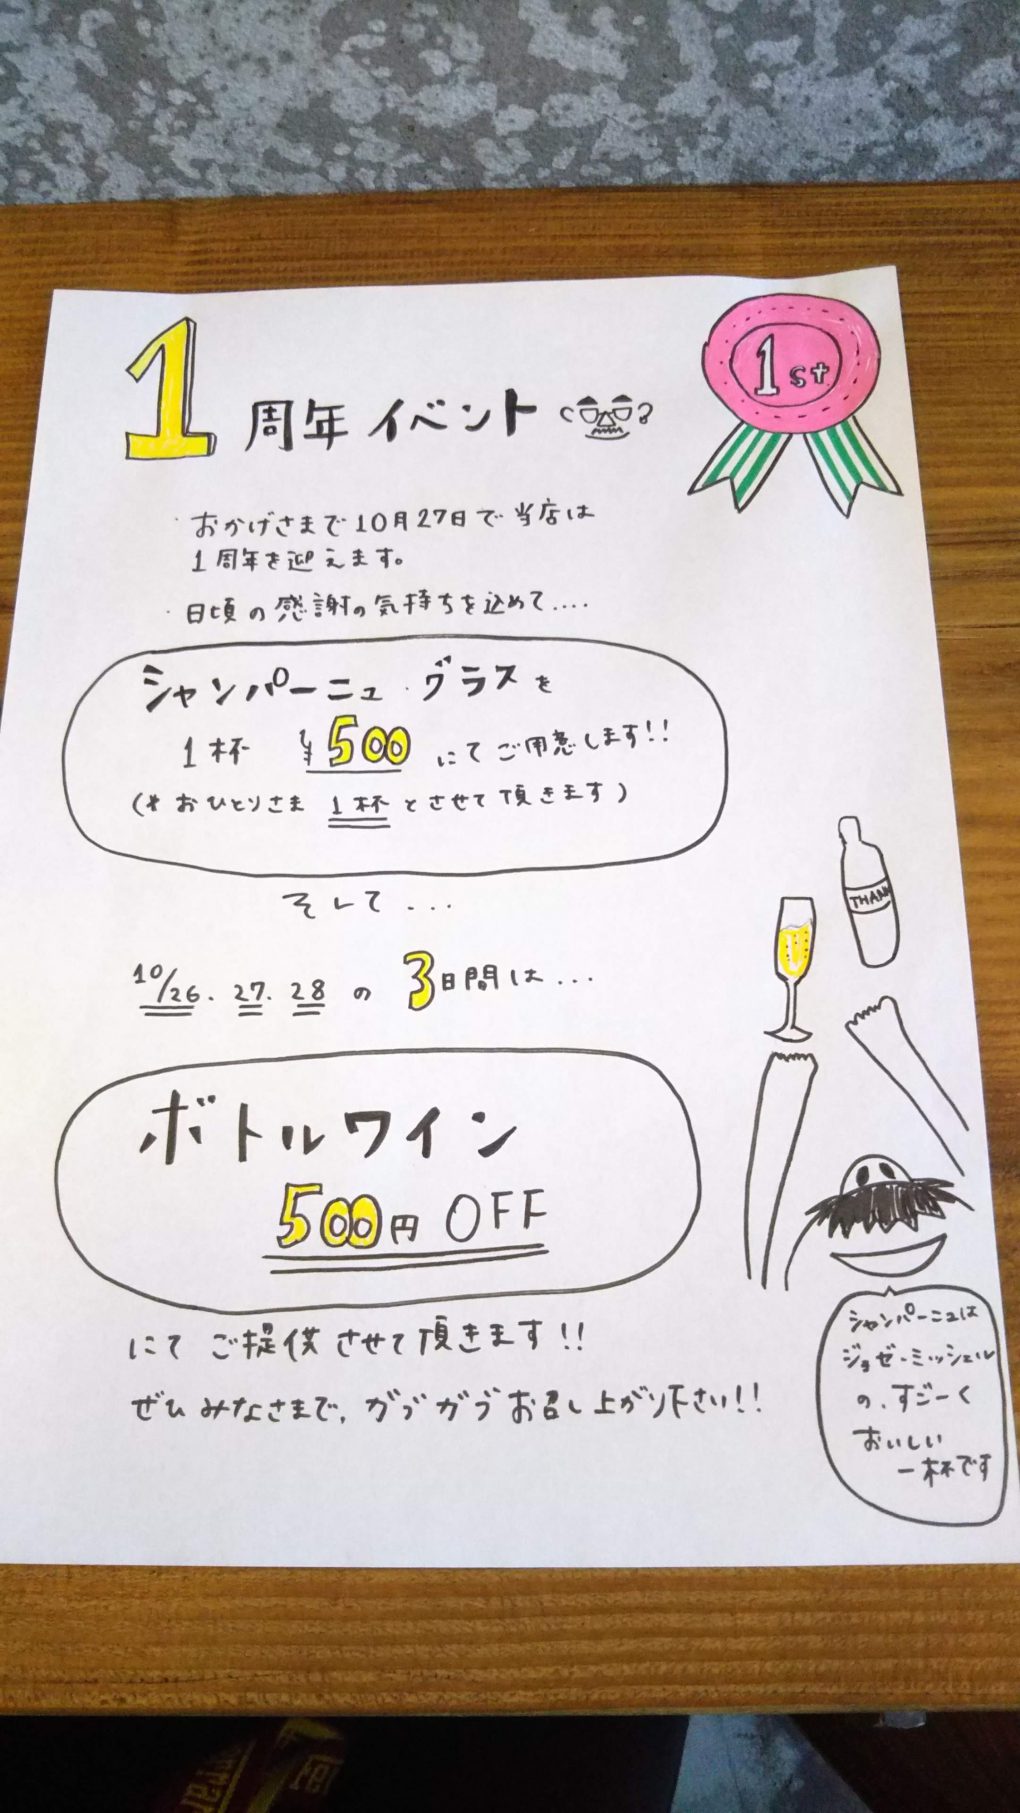 1周年イベント
1st
おかげさまで10月27日で当店は
1周年を迎えます。
・日頃の感謝の気持ちを込めて....
シャンパーニュ・グラスを
1杯 ¥500 にてご用意します!!
(* おひとりさま 1杯 とさせて頂きます)
そして...
10/26.27.28 の 3日間は...
THANK
ボトルワイン
500円 OFF
にて ご提供させて頂きます!!
ぜひみなさまで、ガブガブお召し上がり下さい!!
シャンパーニュは
ジョゼ・ミッシェル
の、すごーく
おいしい
一杯です